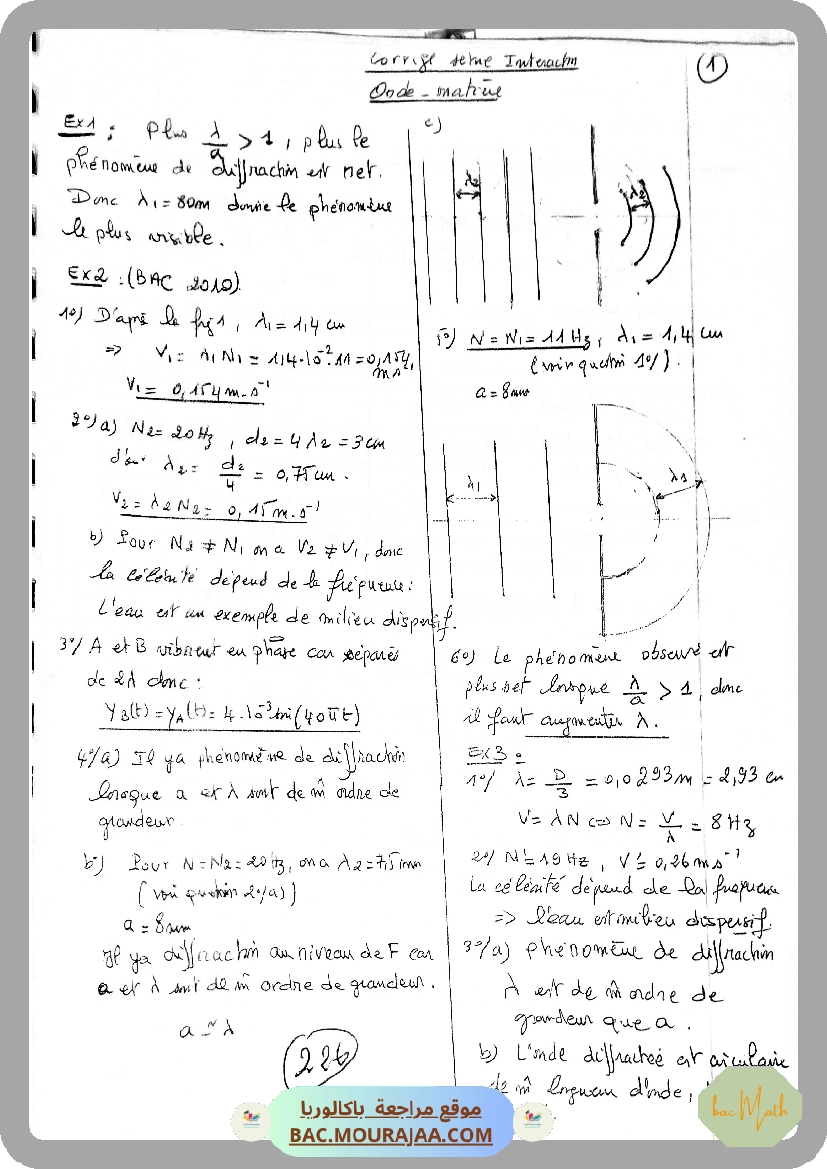 Corrigé série Interaction
Onde - matière
1
Ex1 : Plus λ/a > 1, plus le
phénomène de diffraction est net.
Donc λ1 = 80m donne le phénomène
le plus visible.
Ex2 : (BAC 2010)
1°) D'après la fig1, λ1 = 1,4 cm
=> V1 = λ1 N1 = 1,4.10^-2.11 = 0,154
m s^-1
V1 = 0,154 m.s^-1
2°/a) N2 = 20Hz, d2 = 4 λ2 = 3cm
d'où λ2 = d2/4 = 0,75 cm.
V2 = λ2 N2 = 0,15 m.s^-1
b) Pour N2 ≠ N1 on a V2 ≠ V1, donc
la célérité dépend de la fréquence :
L'eau est un exemple de milieu dispersif.
3°/ A et B vibrent en phase car séparés
de 2λ donc :
yB(t) = yA(t) = 4.10^-3 sin(40πt)
4°/a) Il y a phénomène de diffraction
lorsque a et λ sont de m̂ ordre de
grandeur.
b) Pour N = N2 = 20Hz, on a λ2 = 7,5 mm
(voir question 2°/a)
a = 8mm
Il y a diffraction au niveau de F car
a et λ sont de m̂ ordre de grandeur.
a ≃ λ
226
c)
λ2
λ2
5°) N = N1 = 11 Hz, λ1 = 1,4 cm
(voir question 1°/).
a = 8mm
λ1
λ1
6°) Le phénomène observé est
plus net lorsque λ/a > 1, donc
il faut augmenter λ.
EX3 :
1°/ λ = D/3 = 0,0293m = 2,93 cm
V = λN <=> N = V/λ = 8 Hz
2°/ N' = 19Hz, V' = 0,26 m s^-1
La célérité dépend de la fréquence
=> l'eau est milieu dispersif.
3°/a) phénomène de diffraction
λ est de m̂ ordre de
grandeur que a.
b) L'onde diffractée est circulaire
de m̂ longueur d'onde,
موقع مراجعة باكالوريا
BAC.MOURAJAA.COM
bac Math